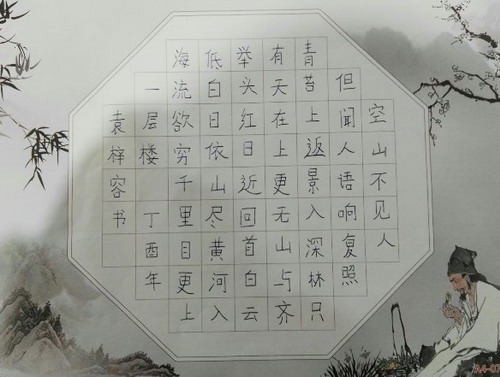 空山不见人
但闻人语响复照
青苔上返景入深林只
有天在上更无山与齐
举头红日近回首白云
低白日依山尽黄河入
海流欲穷千里目更上
一层楼丁酉年
袁梓容书